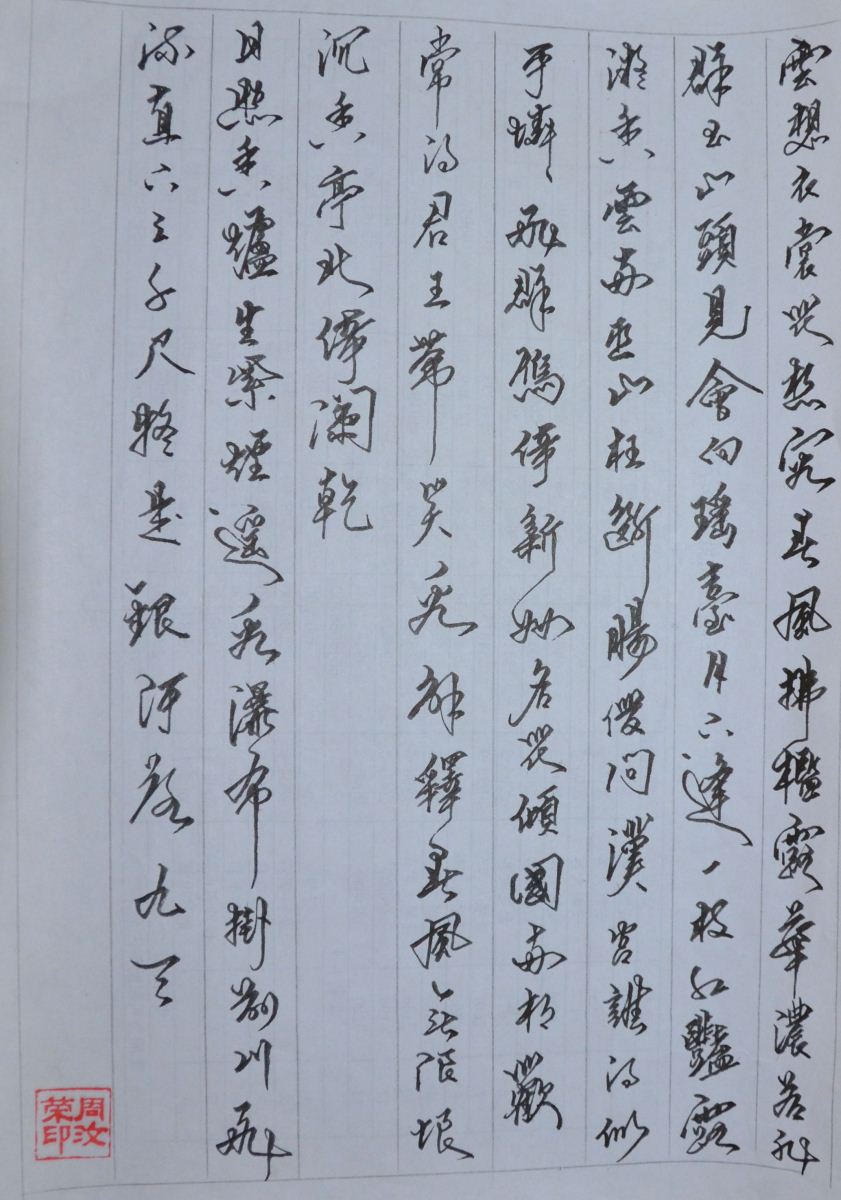 雲想衣裳花想容春風拂檻露華濃若非
群玉山頭見會向瑤臺月下逢一枝紅豔露
凝香雲雨巫山枉斷腸借問漢宮誰得似
可憐飛群倚新妝名花傾國兩相歡
常得君王帶笑看解釋春風無限恨
沉香亭北倚瀾乾
日照香爐生紫煙遙看瀑布掛前川飛
流直下三千尺疑是銀河落九天
周汝
榮印